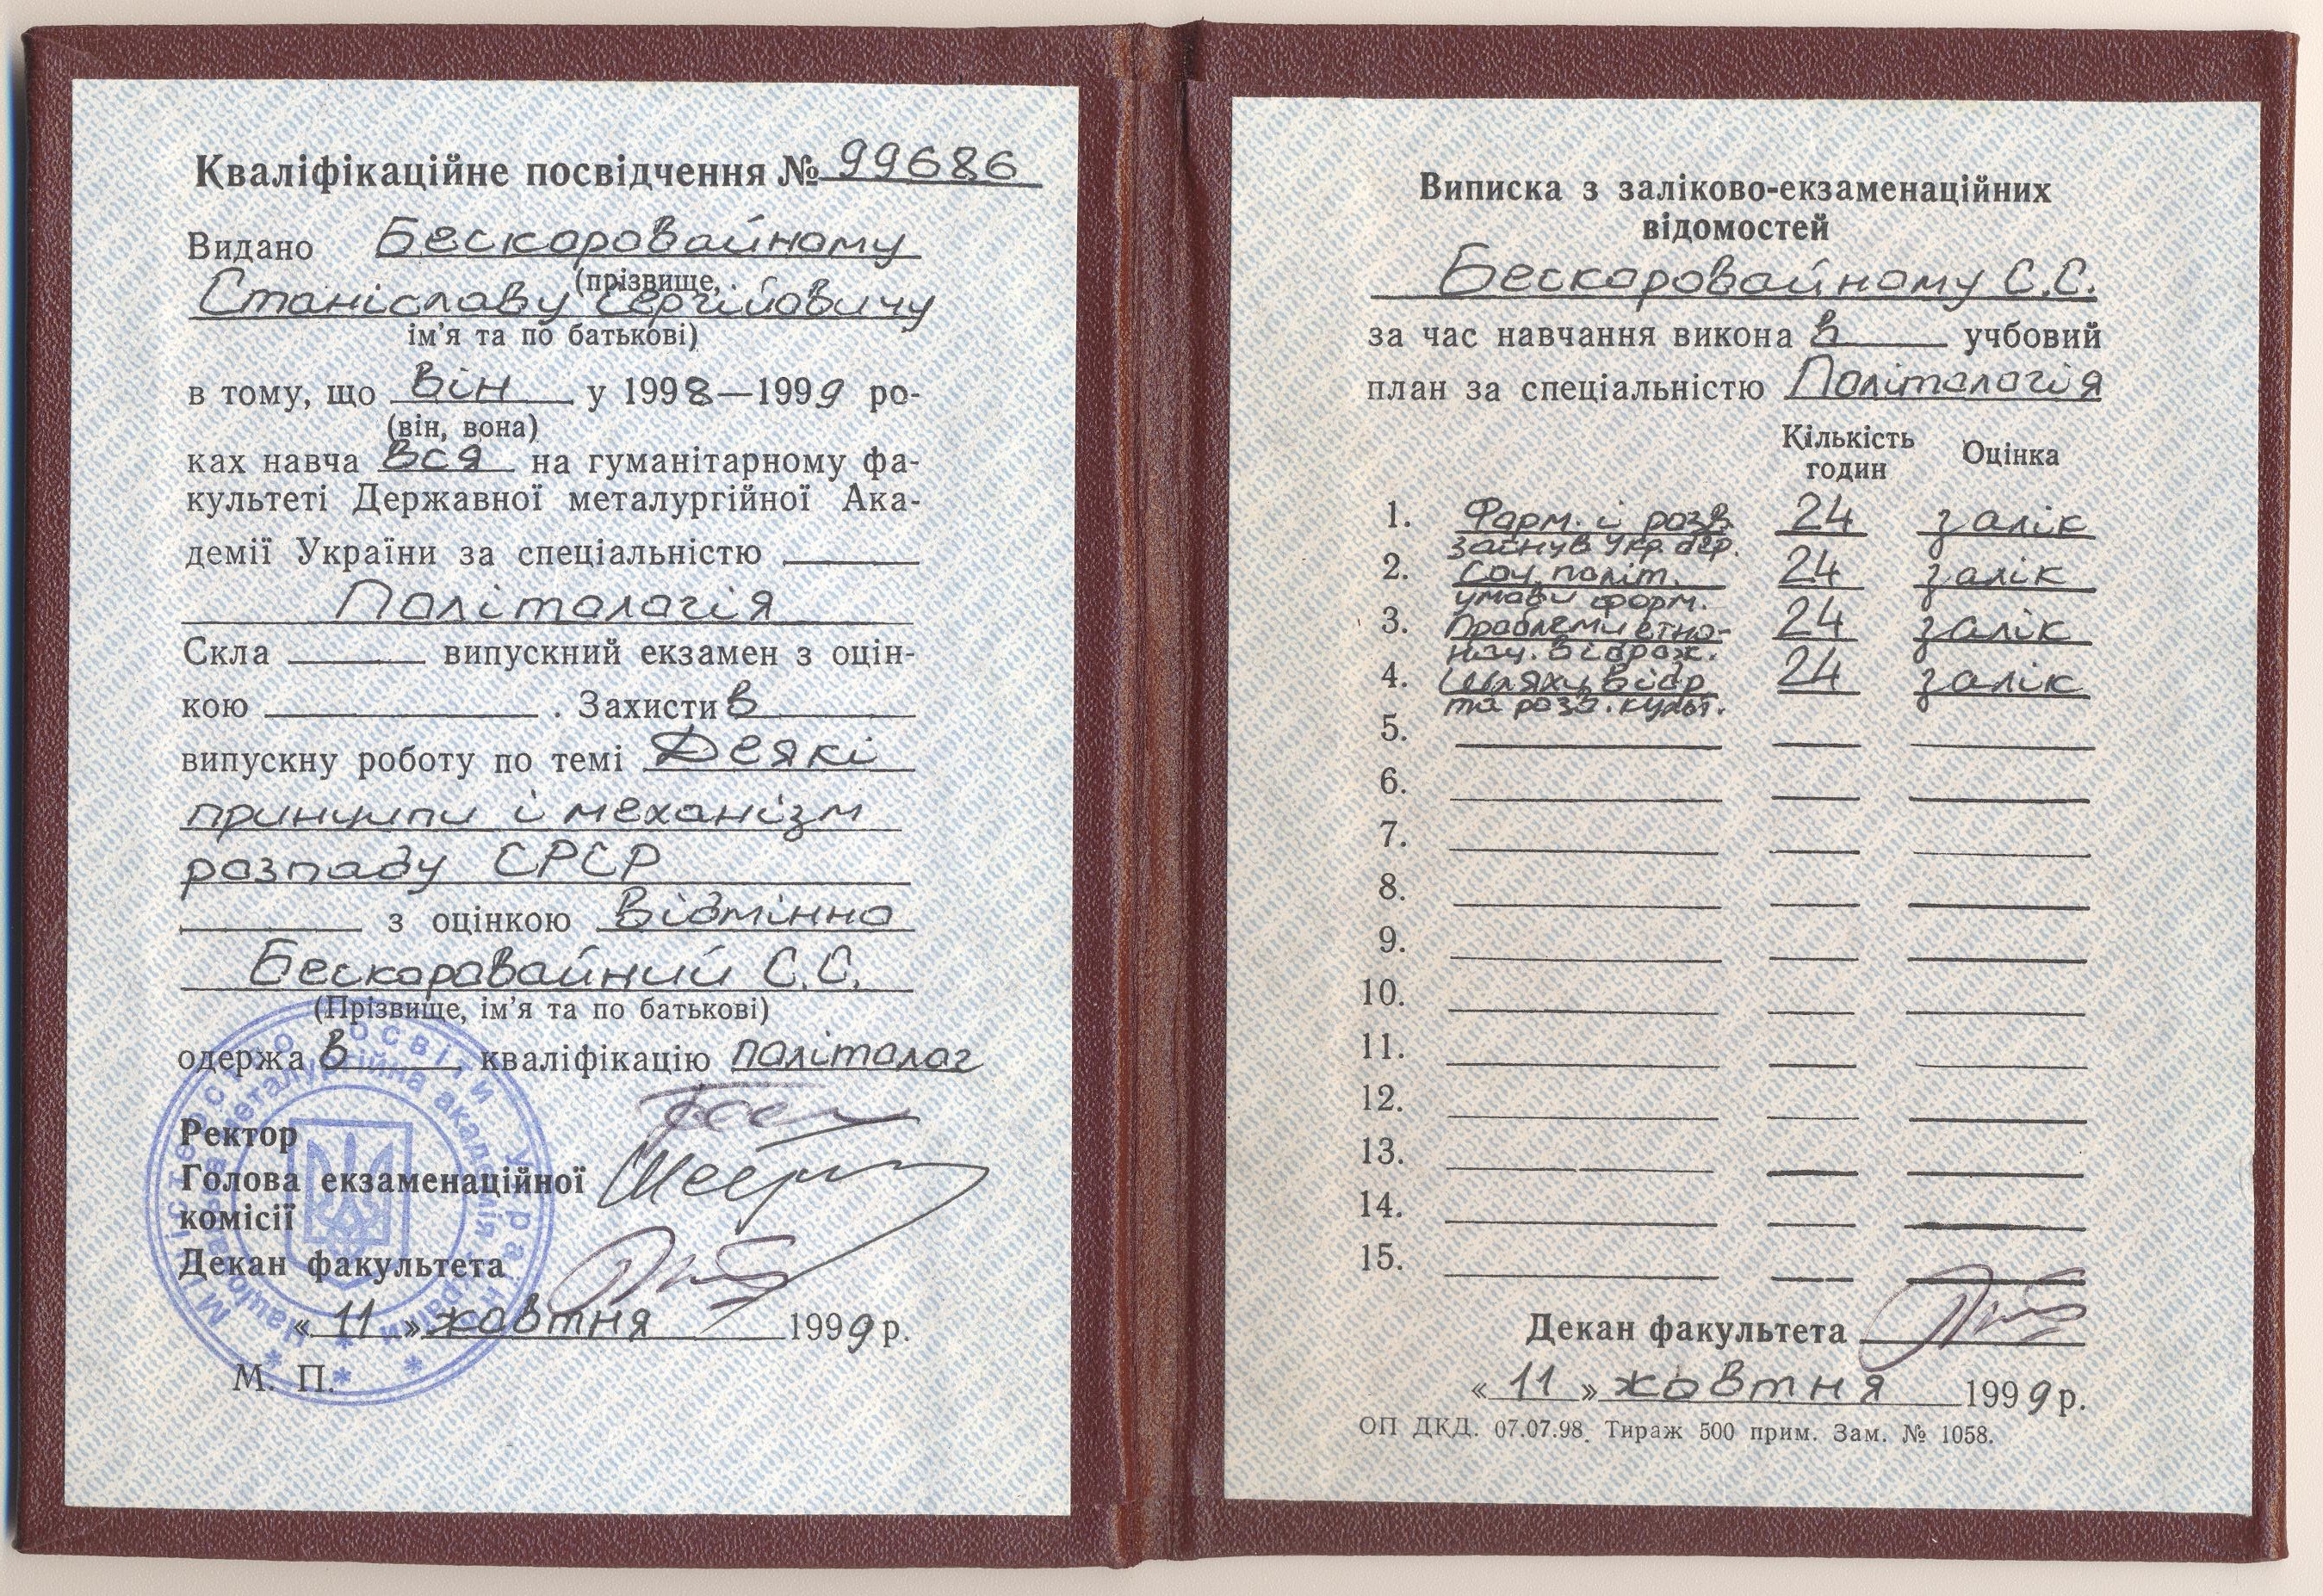 Кваліфікаційне посвідчення № 99686
Видано Бескоровайному
(прізвище,
Станіславу Сергійовичу
ім'я та по батькові)
в тому, що він у 1998—1999 ро-
(він, вона)
ках навча вся на гуманітарному фа-
культеті Державної металургійної Ака-
демії України за спеціальністю
Політологія
Скла випускний екзамен з оцін-
кою . Захисти в
випускну роботу по темі Деякі
принципи і механізм
розпаду СРСР
з оцінкою відмінно
Бескоровайний С.С.
(Прізвище, ім'я та по батькові)
одержа в кваліфікацію політолог
Ректор
Голова екзаменаційної
комісії
Декан факультета
« 11 » жовтня 1999 р.
М. П.
Міністерство освіти України
Національна металургійна академія України
Виписка з заліково-екзаменаційних
відомостей
Бескоровайному С.С.
за час навчання викона в учбовий
план за спеціальністю Політологія
Кількість годин Оцінка
1. Форм. і розв. 24 залік
заснув укр. дер.
2. Соц. політ. 24 залік
умови форм.
3. Проблеми етно- 24 залік
нац. відрож.
4. Шляхи відр 24 залік
та розв. культ.
5.
6.
7.
8.
9.
10.
11.
12.
13.
14.
15.
Декан факультета
« 11 » жовтня 1999 р.
ОП ДКД. 07.07.98. Тираж 500 прим. Зам. № 1058.